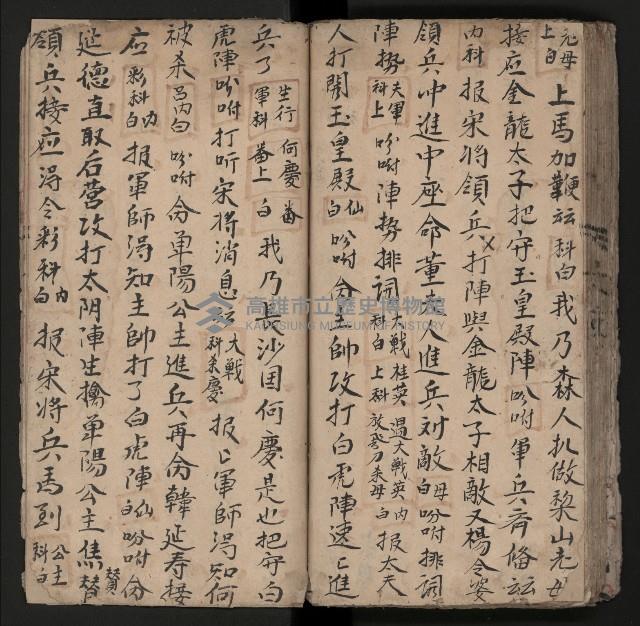 元母上白 上馬加鞭坛 科白 我乃森人扒做梨山老母
接应金龍太子把守玉皇殿陣 吩咐軍兵齊俻坛
内科 报宋將領兵打陣與金龍太子相敵又楊令婆
領兵冲進中座命董夫人進兵对敵 母白 吩咐排詞
陣勢 夫軍科上 吩咐陣勢排詞 科白 大戰桂英上科 过大戰英内白 报太夫
人打開玉皇殿 仙白 吩咐 命主帥攻打白虎陣速匕進
兵了 生行軍科 何慶番上白 我乃長沙国何慶是也把守白
虎陣吩咐打听宋將消息坛 大戰科杀慶 报匕軍師得知何
被杀 呂内白 吩咐命单陽公主進兵再命韓延寿接
应 彩科内白 报軍師得知主帥打了白虎陣 仙白 吩咐命
延德直取后营攻打太阴陣生擒单陽公主焦贊
領兵接应得令 彩科内白 报宋將兵馬到 公主科白
高雄市立歷史博物館
KAOHSIUNG MUSEUM OF HISTORY